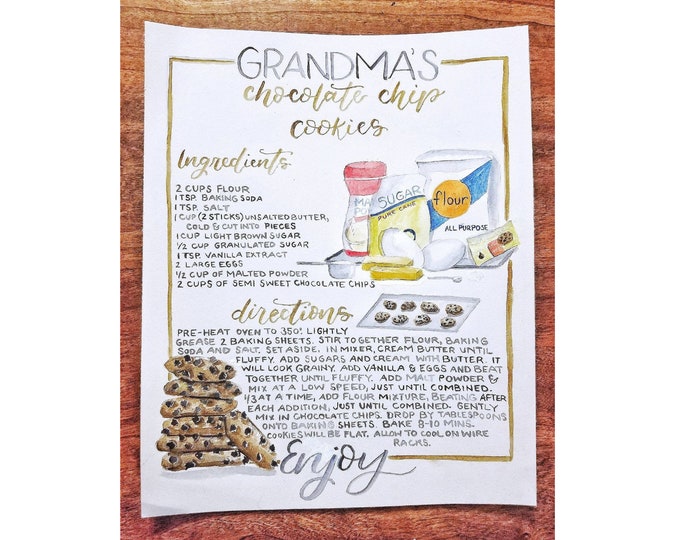 GRANDMA'S
chocolate chip
cookies
Ingredients
2 CUPS FLOUR
1 TSP. BAKING SODA
1 TSP. SALT
1 CUP (2 STICKS) UNSALTED BUTTER,
COLD & CUT INTO PIECES
1 CUP LIGHT BROWN SUGAR
1/2 CUP GRANULATED SUGAR
1 TSP. VANILLA EXTRACT
2 LARGE EGGS
1/2 CUP OF MALTED POWDER
2 CUPS OF SEMI SWEET CHOCOLATE CHIPS
MA
PO
SUGAR
PURE CANE
flour
ALL PURPOSE
directions
PRE-HEAT OVEN TO 350°. LIGHTLY
GREASE 2 BAKING SHEETS. STIR TOGETHER FLOUR, BAKING
SODA AND SALT. SET ASIDE. IN MIXER, CREAM BUTTER UNTIL
FLUFFY. ADD SUGARS AND CREAM WITH BUTTER. IT
WILL LOOK GRAINY. ADD VANILLA & EGGS AND BEAT
TOGETHER UNTIL FLUFFY. ADD MALT POWDER &
MIX AT A LOW SPEED, JUST UNTIL COMBINED.
1/3 AT A TIME, ADD FLOUR MIXTURE, BEATING AFTER
EACH ADDITION, JUST UNTIL COMBINED. GENTLY
MIX IN CHOCOLATE CHIPS. DROP BY TABLESPOONS
ONTO BAKING SHEETS. BAKE 8-10 MINS.
COOKIES WILL BE FLAT. ALLOW TO COOL ON WIRE
RACKS.
Enjoy